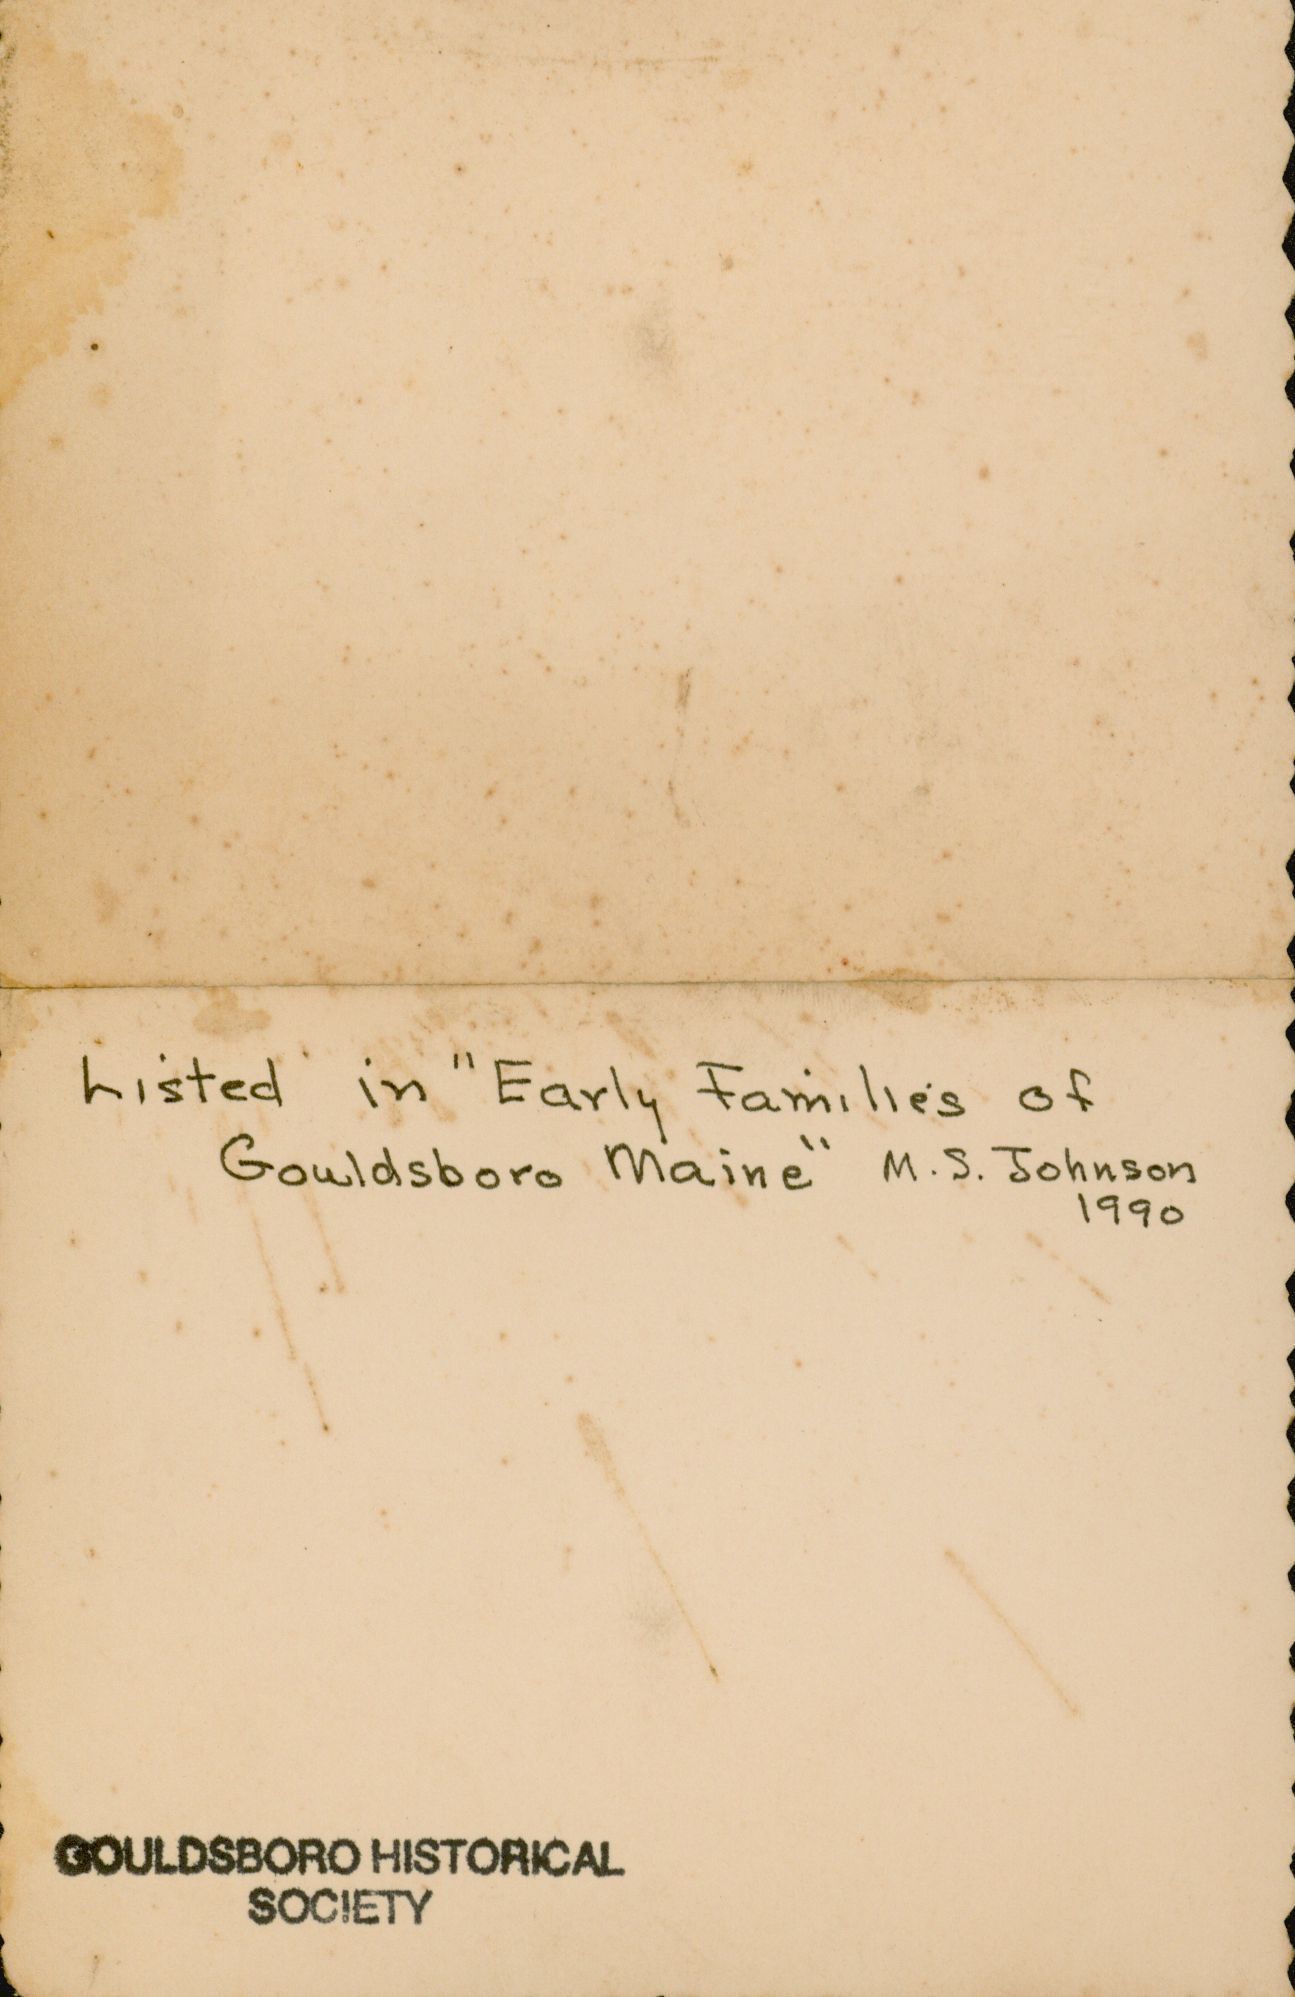 Listed in "Early Families of
Gouldsboro Maine" M.S. Johnson
1990
GOULDSBORO HISTORICAL
SOCIETY